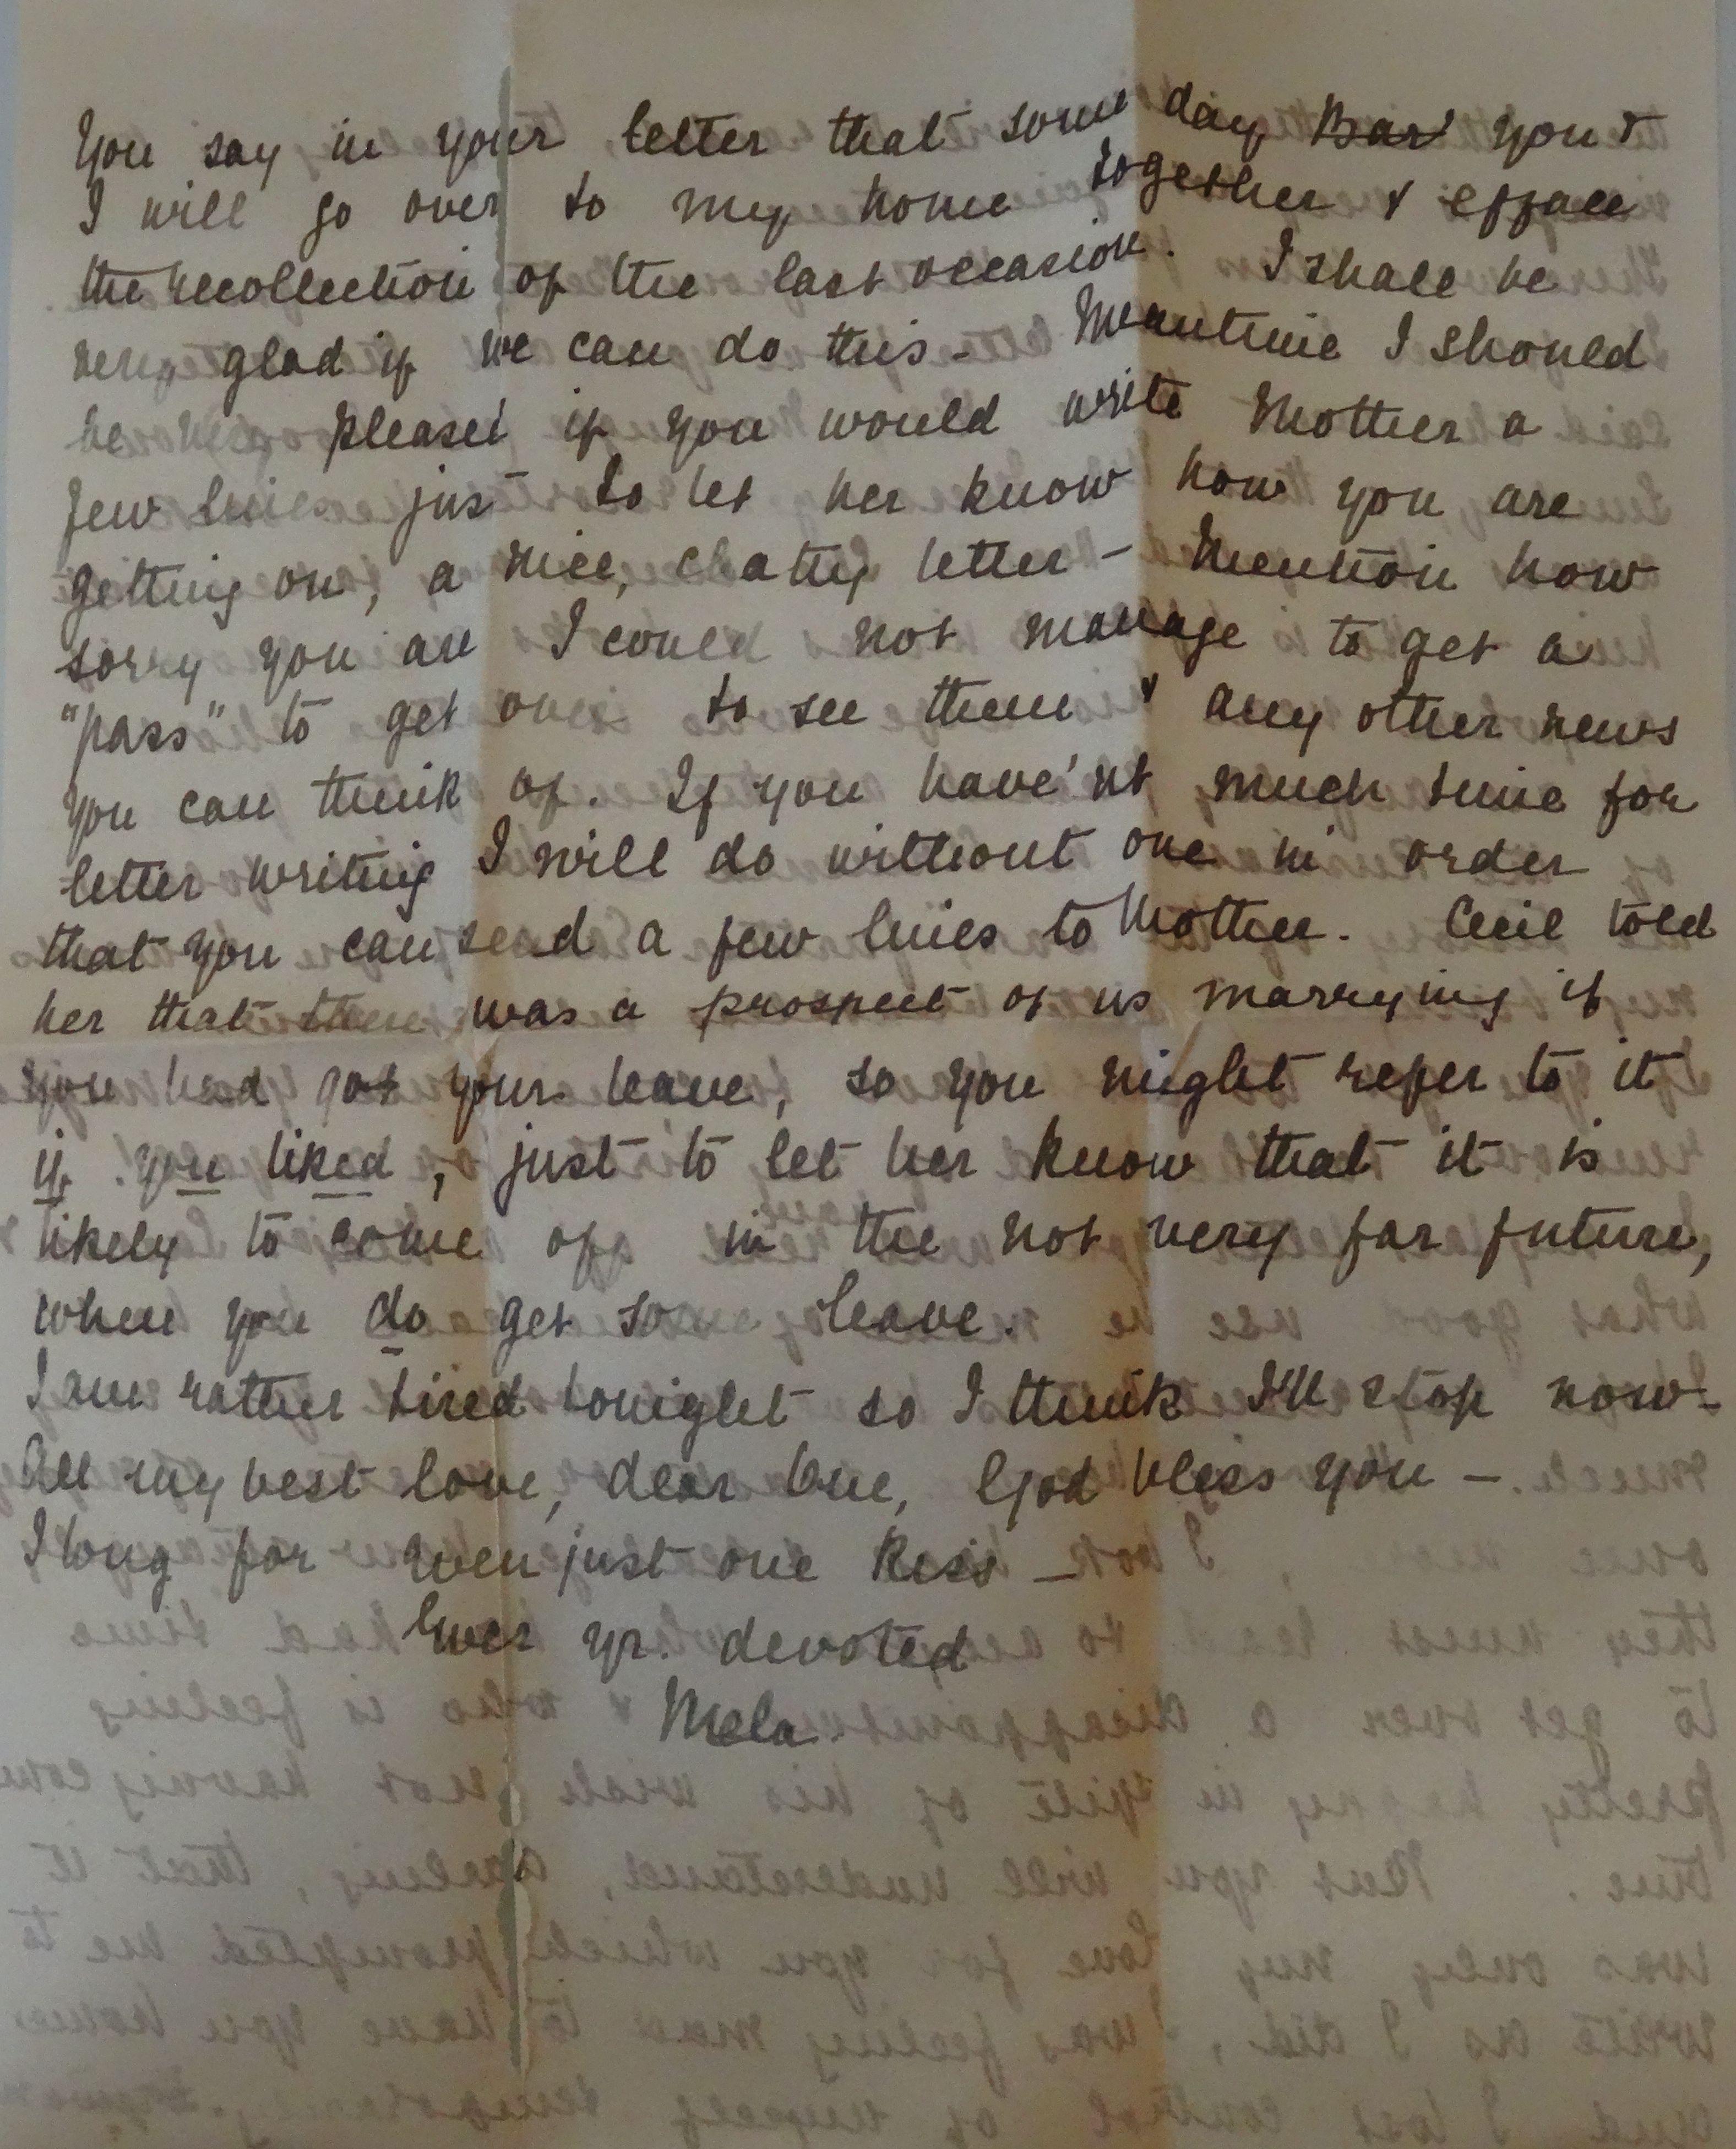 You say in your letter that some day you &
I will go over to my home together & efface
the recollection of the last occasion. I shall be
very glad if we can do this - Meantime I should
be very pleased if you would write Mother a
few lines just to let her know how you are
getting on, a nice, chatty letter - mention how
sorry you are I could not manage to get a
"pass" to get over to see them & any other news
you can think of. If you have'nt much time for
letter writing I will do without one in order
that you can send a few lines to Mother. Cecil told
her that there was a prospect of us marrying if
you had got your leave, so you might refer to it
if you liked, just to let her know that it is
likely to come off in the not very far future,
when you do get some leave.
I am rather tired tonight so I think I'll stop now -
All my best love, dear One, God bless you -
I long for even just one kiss -
Ever yr. devoted
Mela.